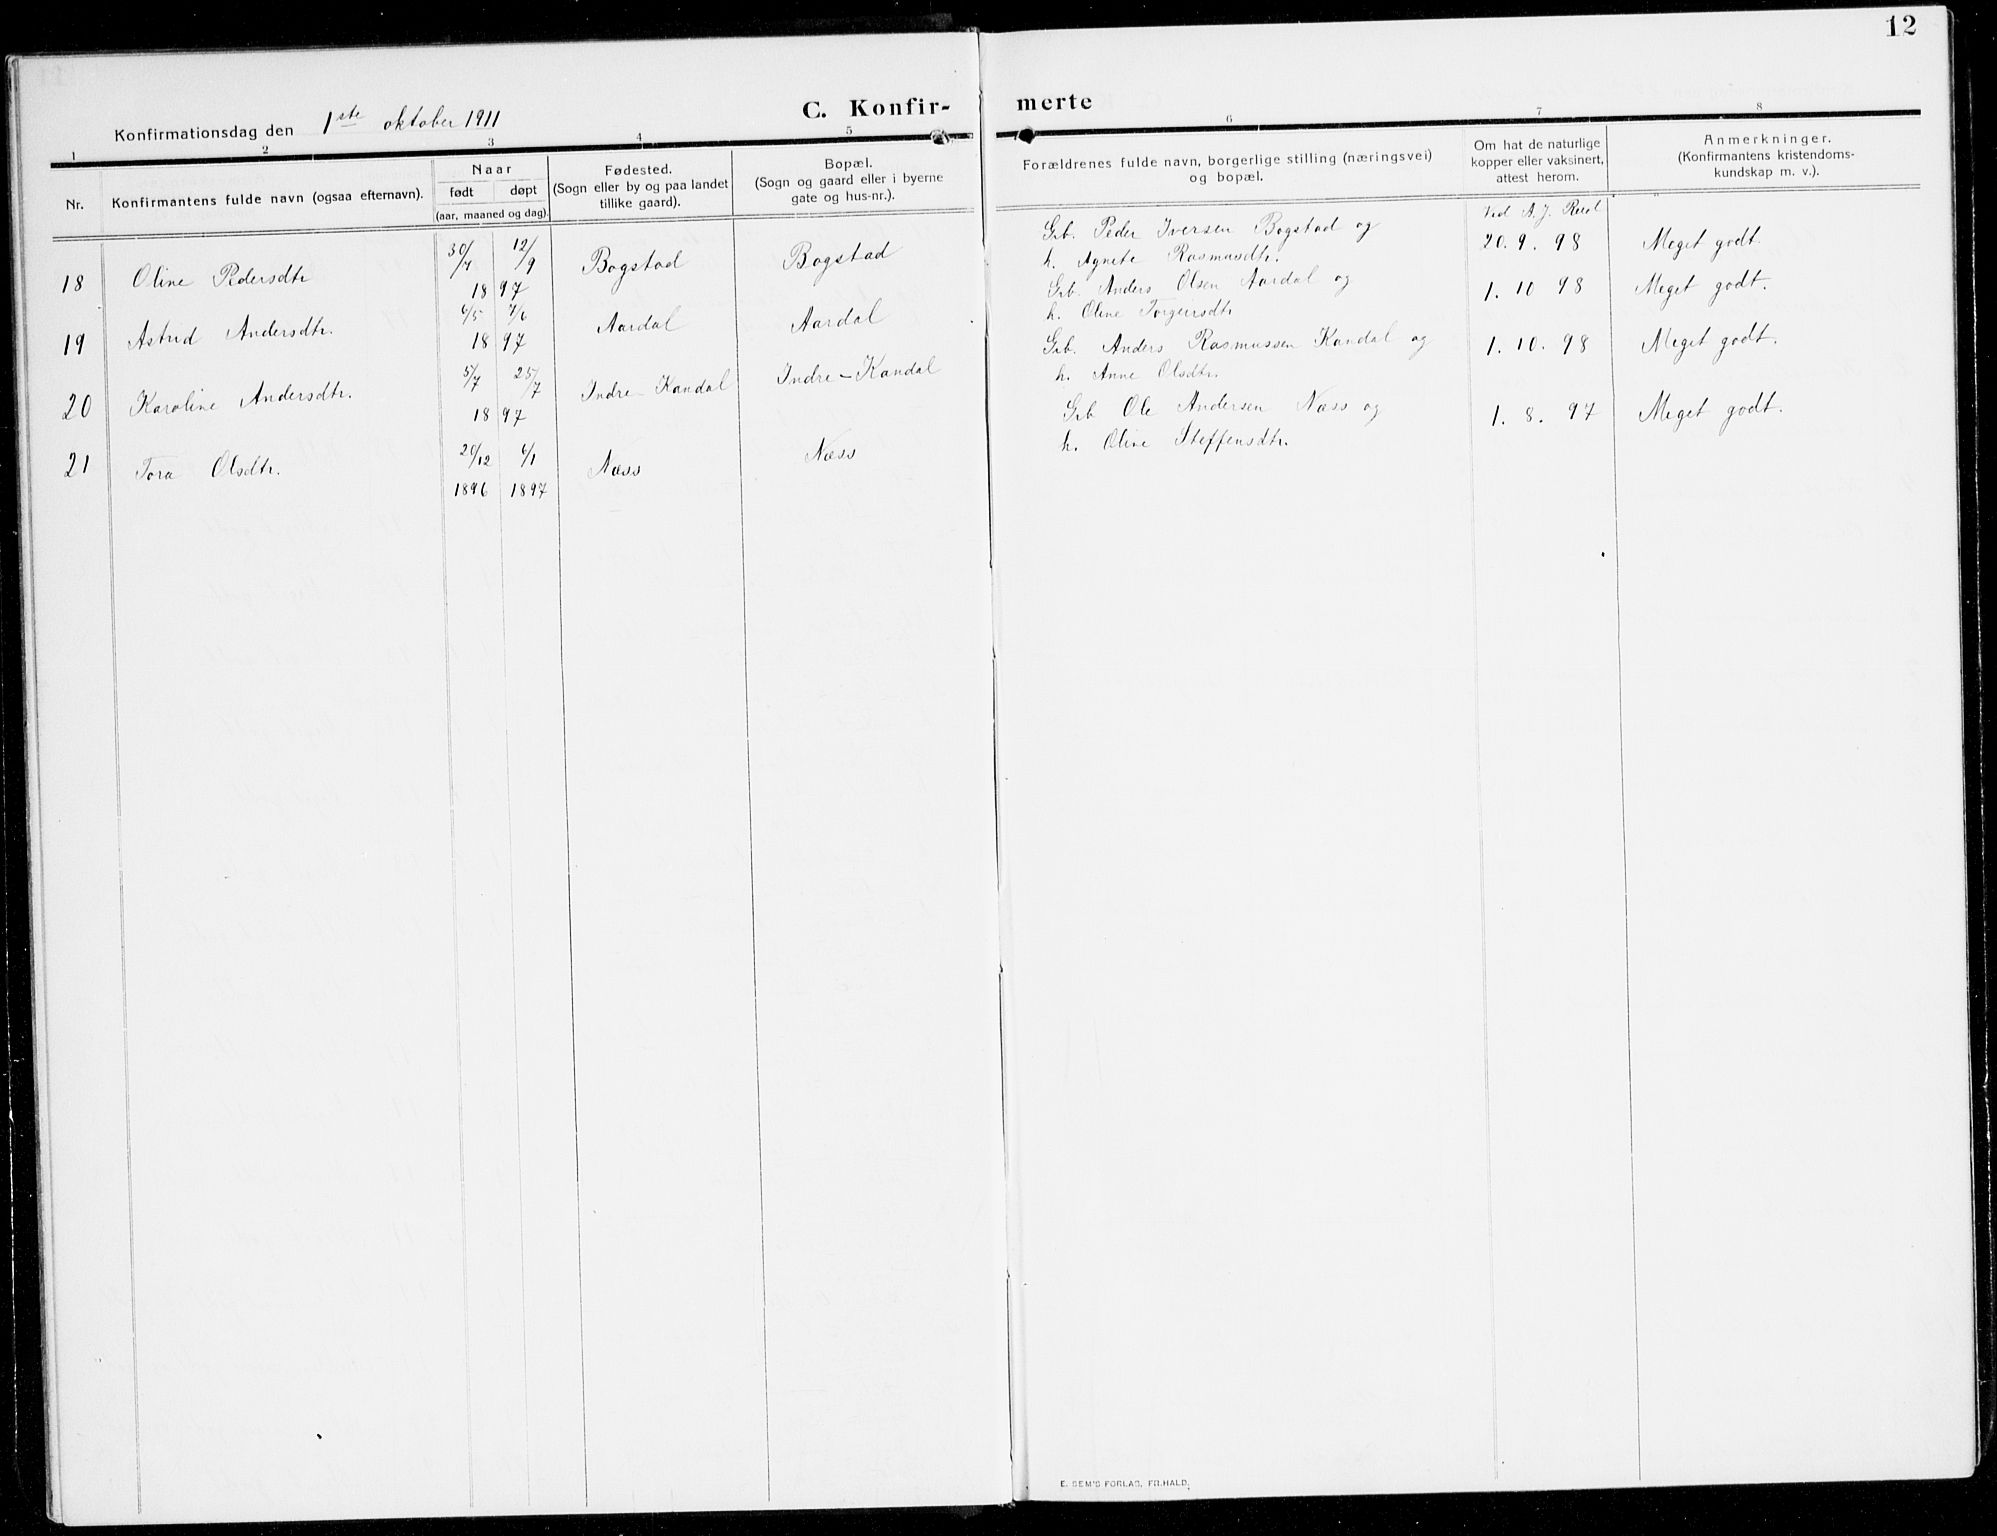 12
C. Konfir-
merte
Konfirmationsdag den 1ste oktober 1911
1 2 3 4 5
6 7 8
Nr.
Konfirmantens fulde navn (ogsaa efternavn).
Naar
født døpt
(aar, maaned og dag).
Fødested.
(Sogn eller by og paa landet
tillike gaard).
Bopæl.
(Sogn og gaard eller i byerne
gate og hus-nr.).
Forældrenes fulde navn, borgerlige stilling (næringsvei)
og bopæl.
Om hat de naturlige
kopper eller vaksinert,
attest herom.
Anmerkninger.
(Konfirmantens kristendoms-
kundskap m. v.).
18 Oline Pedersdtr 30/7 12/9 1897 Bogstad Bogstad
Grb. Peder Iversen Bogstad og
h. Agnete Rasmusdtr.
Ved A. J.
20. 9. 98 Meget godt.
19 Astrid Andersdtr. 6/5 7/6 1897 Aardal Aardal
Grb. Anders Olsen Aardal og
h. Oline Torgeirsdtr
1. 10 98 Meget godt.
20 Karoline Andersdtr. 5/7 25/7 1897 Indre-Kandal Indre-Kandal
Grb. Anders Rasmussen Kandal og
h. Anne Olsdtr.
1. 10. 98 Meget godt.
21 Tora Olsdtr. 20/12 6/1 1896 1897 Næss Næss
Grb Ole Andersen Næss og
h. Oline Steffensdtr.
1. 8. 97 Meget godt.
E. SEM'S FORLAG, FR.HALD.